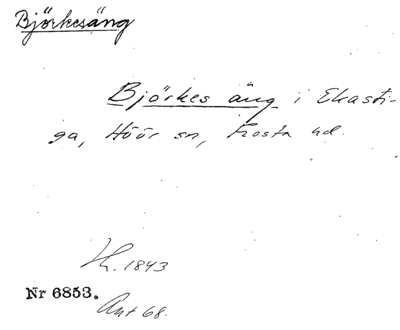 Björkesäng
Björkes äng i Ekasti-
ga, Höör sn, Frosta hd.
H. 1843
Nr 6853.
Ant 68.